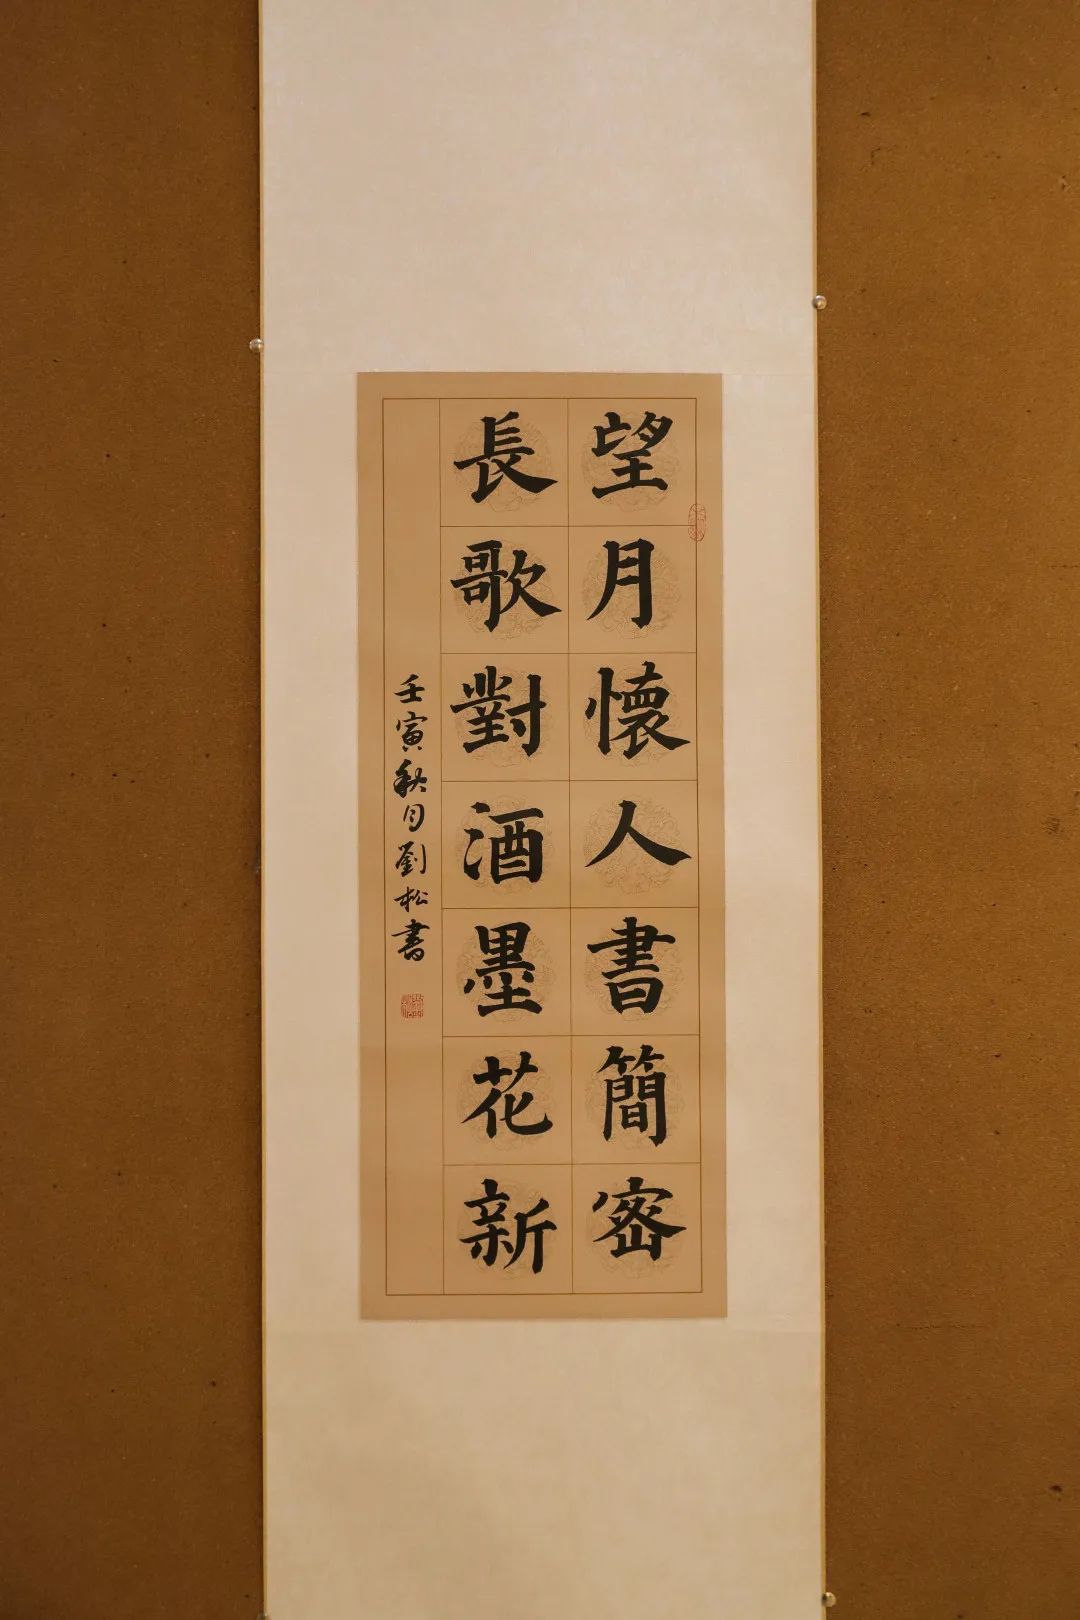 望月懷人書簡密
長歌對酒墨花新
壬寅秋月劉松書